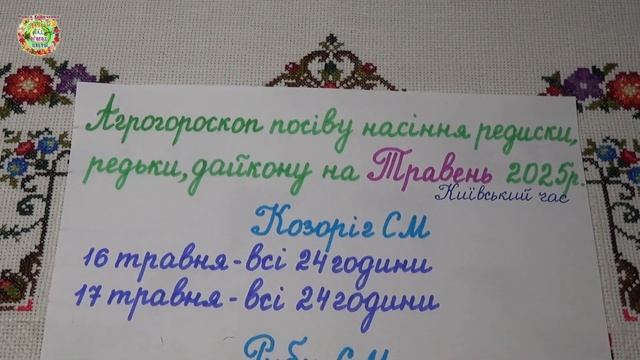 Агрогороскоп посіву насіння редиски,
редьки, дайкону на Травень 2025р.
Київський час
Козоріг СМ
16 травня - всі 24 години
17 травня - всі 24 години